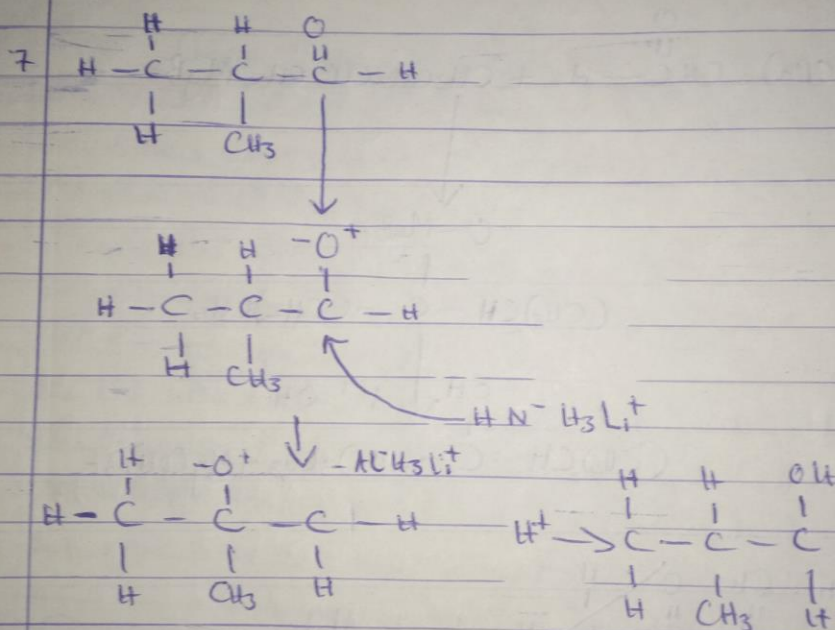 H H O
7 H - C - C - C - H
H CH3
H H -O+
H - C - C - C - H
H CH3
H N- H3Li+
H -O+ - AL-H3Li+
H - C - C - C - H
H CH3 H
H H OH
H+ → C - C - C
H CH3 H